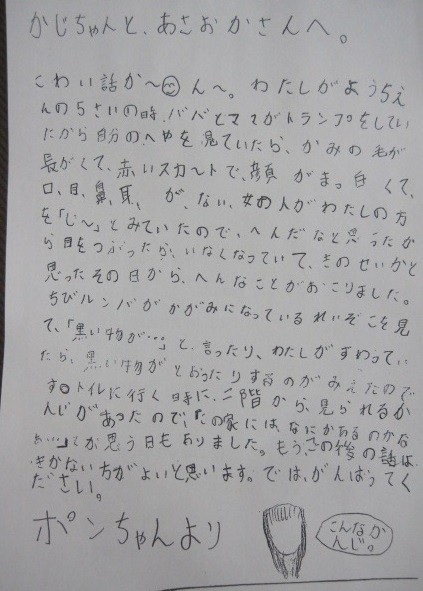 かじちゃんと、あさおかさんへ。
こわい話か〜ん〜。わたしがようちえ
んの5さいの時、パパとママがトランプをしてい
たから自分のへやを見ていたら、かみの毛が
長がくて、赤いスカートで、顔がまっ白くて、
口、目、鼻、耳、が、ない、女の人がわたしの方
を「じ〜」とみていたので、へんだなと思うたか
ら目をつぶったら、いなくなっていて、きのせいかと
思ったその日から、へんなことがおこりました。
ちびルンバがかがみになっているれいぞこを見
て、「黒い物が…。」と言ったり、わたしがすわってい
たら、黒い物がとおったりするのがみえたので
す。トイレに行く時に、二階から、見られるか
んじがあったので、「この家にはなにかあるのかな
ぁ…」とか思う日もありました。もう、この後の話は、
きかない方がよいと思います。では、がんばってく
ださい。
ポンちゃんより
こんなか
んじ。